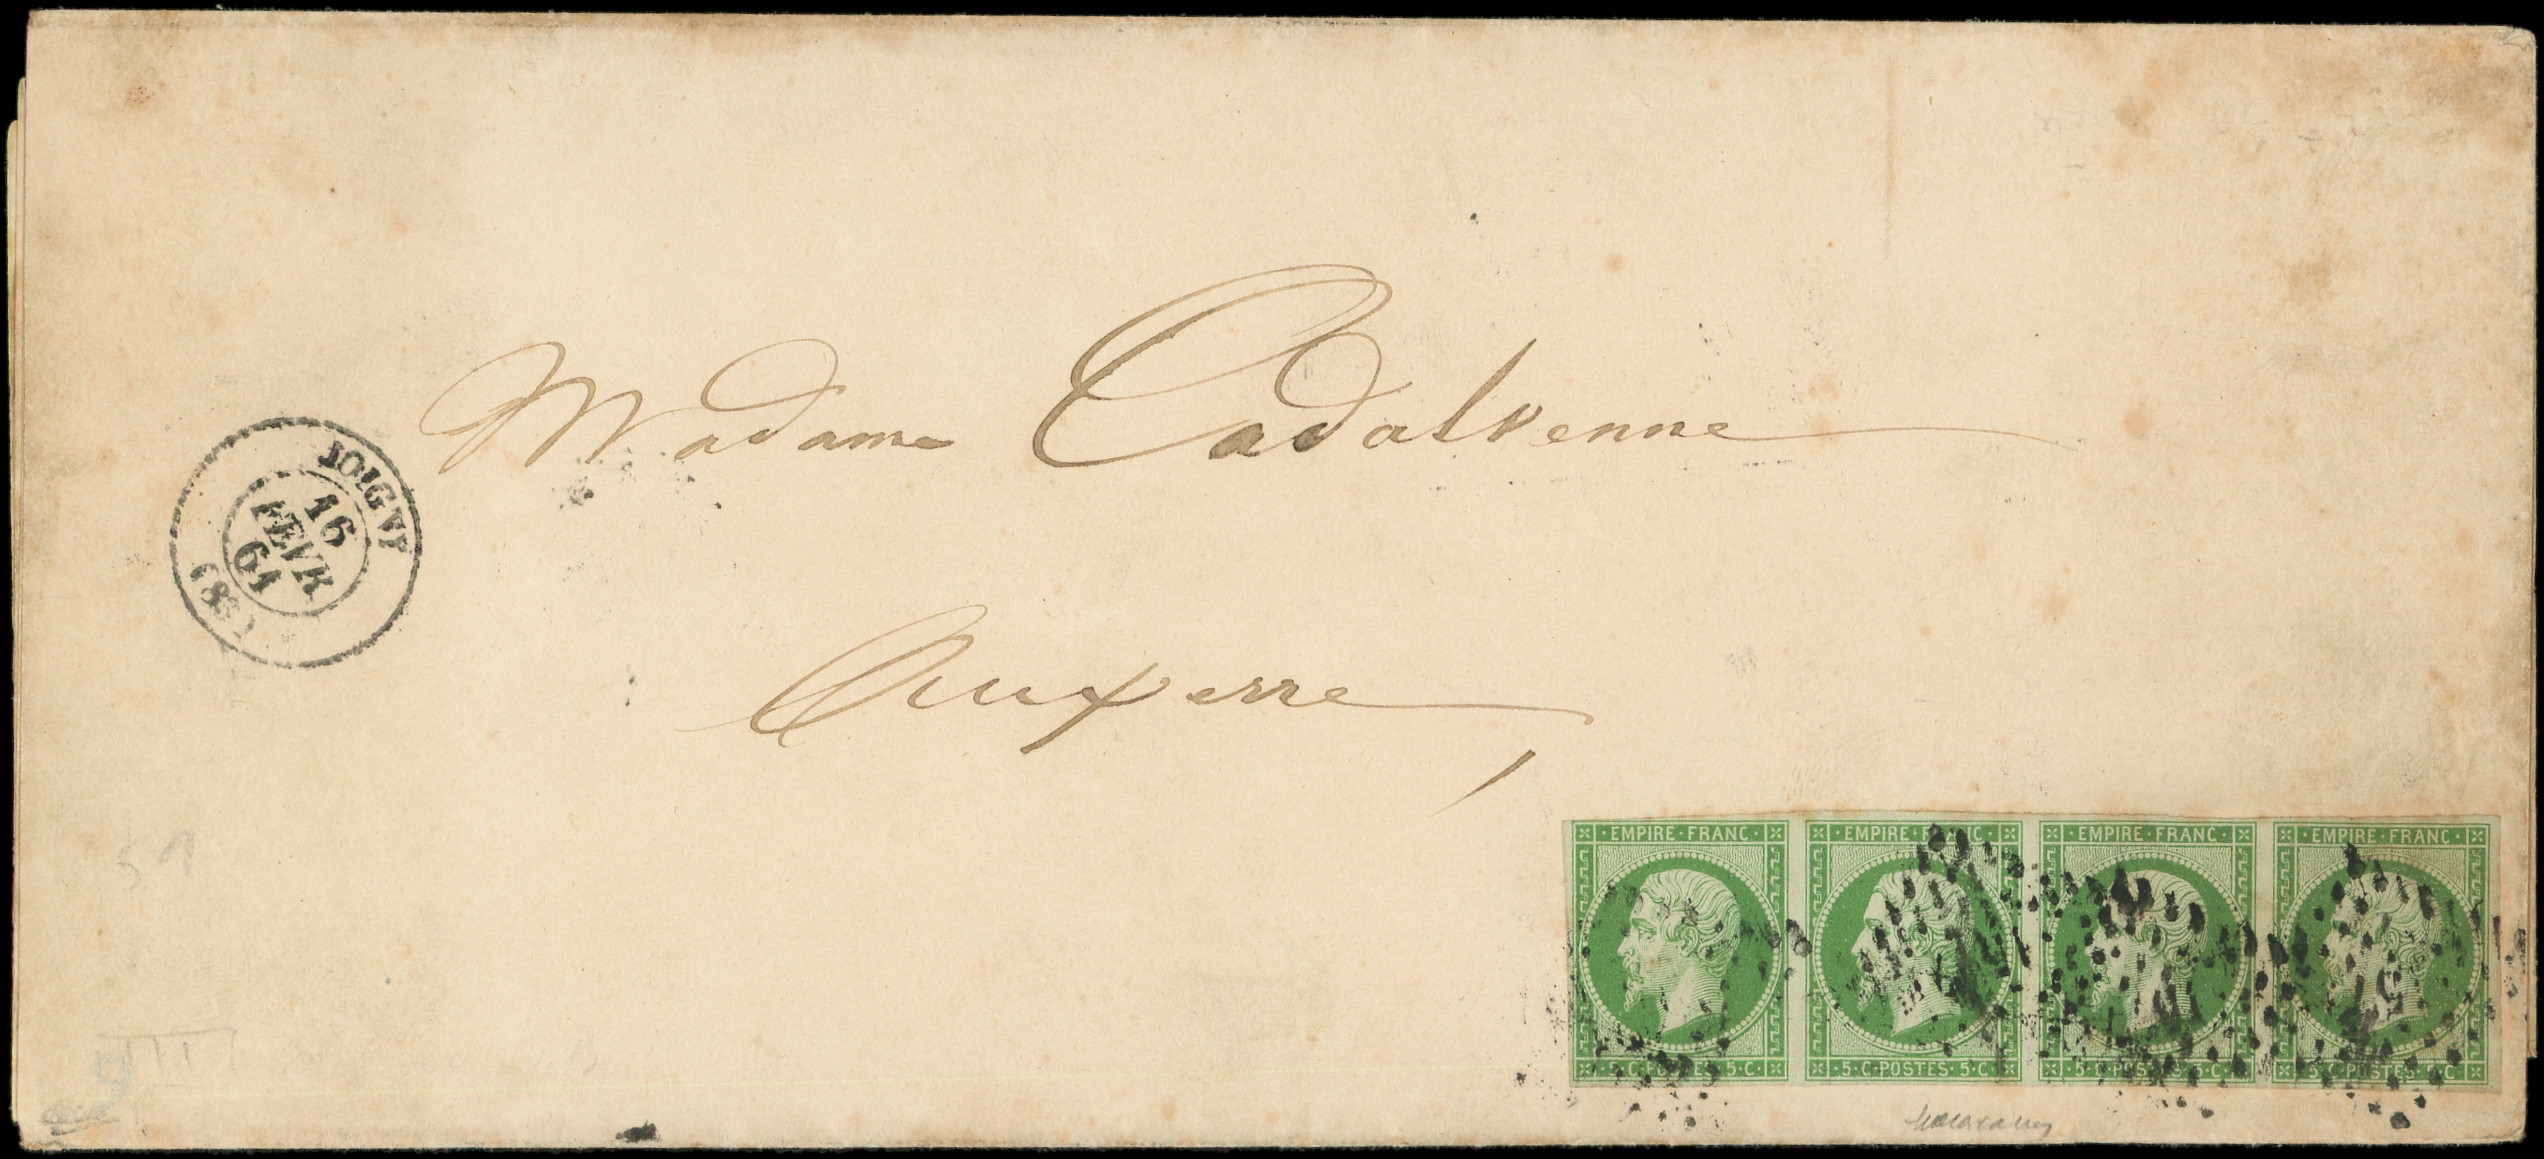 Madame Cadalvenne
Auxerre
JOIGNY
16
FEVR
61
(83)
51
EMPIRE·FRANC·
EMPIRE·FRANC·
EMPIRE·FRANC·
EMPIRE·FRANC·
5·C·POSTES·5·C
5·C·POSTES·5·C
5·C·POSTES·5·C
5·C·POSTES·5·C